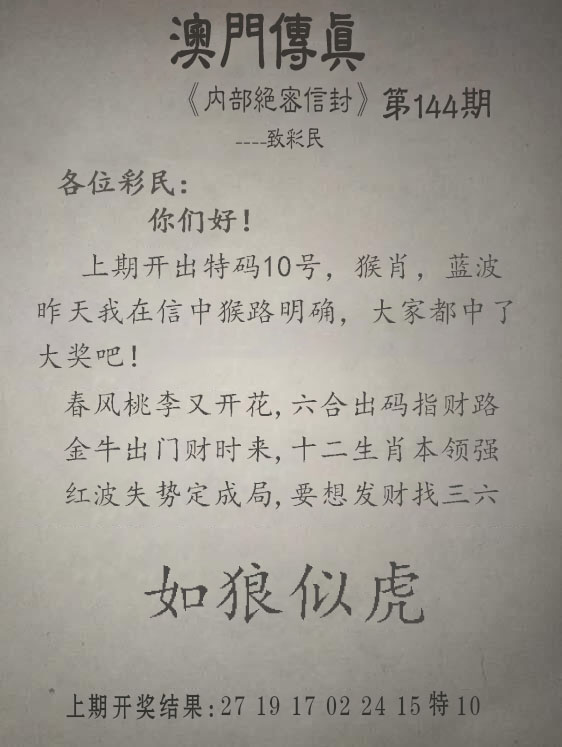 澳門傳真
《内部絕密信封》第144期
----致彩民
各位彩民：
你们好！
上期开出特码10号，猴肖，蓝波
昨天我在信中猴路明确，大家都中了
大奖吧！
春风桃李又开花,六合出码指财路
金牛出门财时来,十二生肖本领强
红波失势定成局,要想发财找三六
如狼似虎
上期开奖结果:27 19 17 02 24 15特10